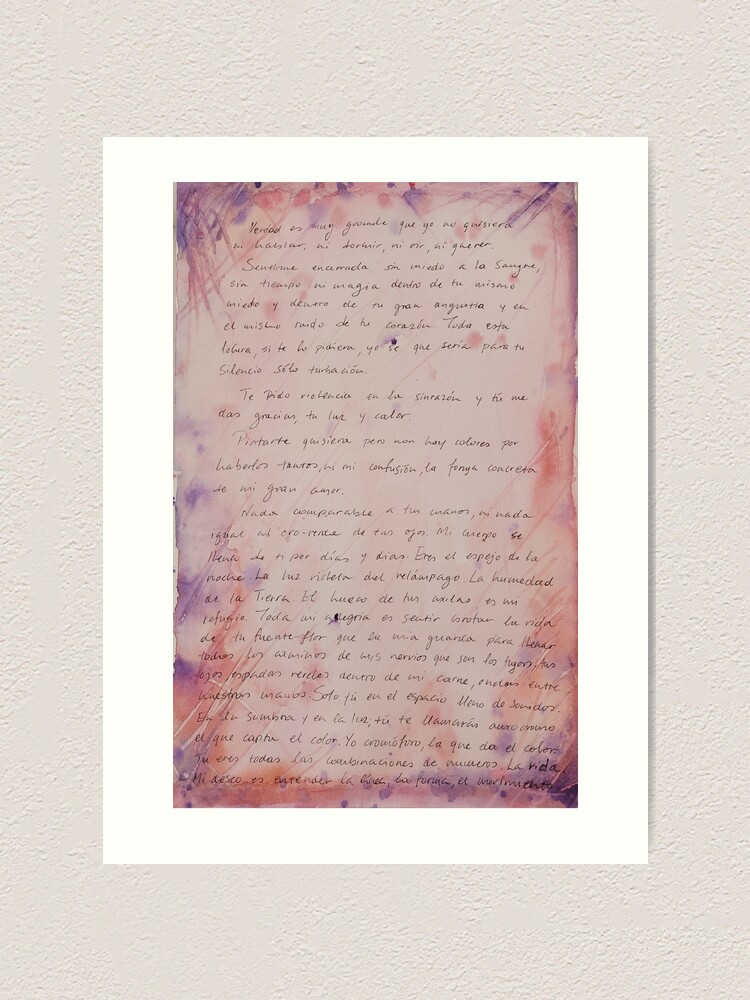 Verdad es muy grande que yo no quisiera
ni hablar, ni dormir, ni oir, ni querer.
Sentirme encerrada sin miedo a la sangre,
sin tiempo ni magia dentro de tu mismo
miedo y dentro de tu gran angustia y en
el mismo ruido de tu corazón. Toda esta
locura, si te lo pidiera, yo sé que sería para tu
silencio sólo turbación.
Te pido violencia en la sinrazón y tú me
das gracias, tu luz y calor.
Pintarte quisiera pero non hay colores por
haberlos tantos, ni mi confusión, la forma concreta
de mi gran amor.
Nada comparable a tus manos, ni nada
igual al oro-verde de tus ojos. Mi cuerpo se
llena de ti por días y días. Eres el espejo de la
noche. La luz violeta del relámpago. La humedad
de la Tierra. El hueco de tus axilas es mi
refugio. Toda mi alegria es sentir brotar la vida
de tu fuente-flor que la mia guarda para llenar
todos los caminos de mis nervios que son los tuyos, tus
ojos espadas verdes dentro de mi carne, ondas entre
nuestras manos. Solo tú en el espacio lleno de sonidos.
En la sumbra y en la luz, tú te llamarás auxocromo
el que capta el color. Yo cromóforo, la que da el color.
Tu eres todas las combinaciones de numeros. La vida
Mi deseo es entender la línea, la forma, el movimiento